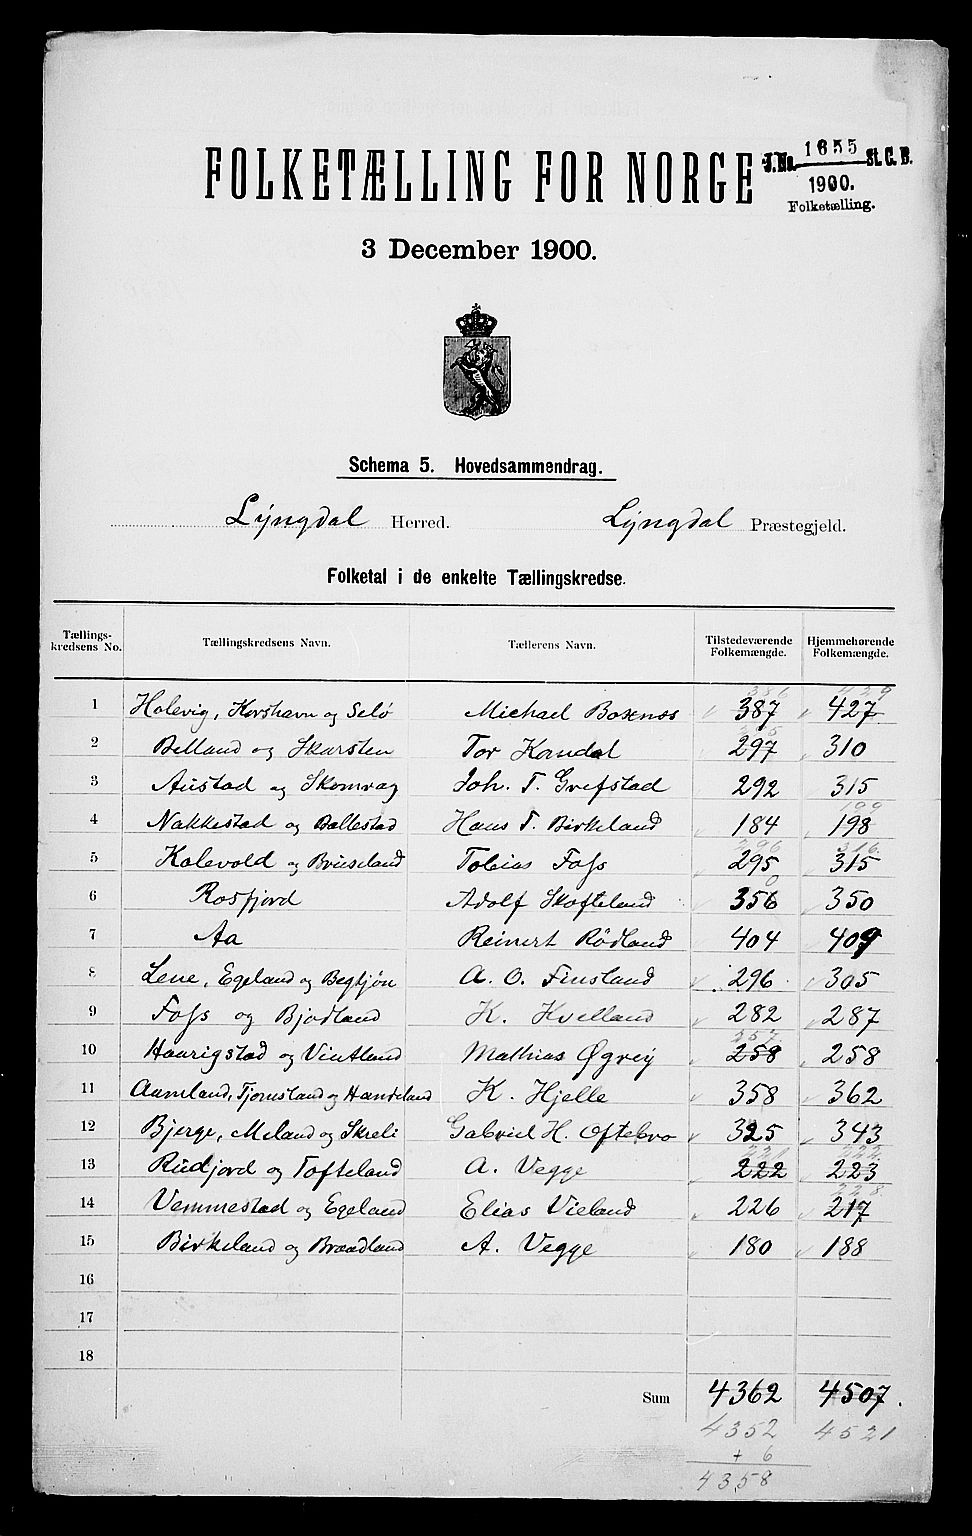 FOLKETÆLLING FOR NORGE
J.No. 1655 St. C. B.
1900.
Folketælling.
3 December 1900.
Schema 5. Hovedsammendrag.
Lyngdal Herred. Lyngdal Præstegjeld.
Folketal i de enkelte Tællingskredse.
Tællings-kredsens No. Tællingskredsens Navn. Tællerens Navn. Tilstedeværende Folkemængde. Hjemmehørende Folkemængde.
386 429
1 Holevig, Korshavn og Selö Michael Boxnæs 387 427
2 Belland og Skarsten Tor Kandal 297 310
3 Austad og Skomrag Joh. T. Grefstad 292 315
199
4 Nakkestad og Ballestad Hans T. Birkeland 184 198
296 316
5 Kalevold og Bruseland Tobias Foss 295 315
0
6 Rosfjord Adolf Skofteland 356 350
7 Aa Reinert Rödland 404 409
8 Lene, Egeland og A. O. Finsland 296 305
9 Foss og Bjodland K. Kvelland 282 287
257
10 Haarigstad og Vintland Mathias Øgrey 258 258
11 Aamland, Tjomsland og K. Hjelle 358 362
12 Bjerge, Meland og Skreli Gabriel H. Oftebro 325 343
221 222
13 Rudjord og Tofteland A. Vegge 222 223
228
14 Vemmestad og Egeland Elias Vieland 226 217
15 Birkeland og Braadland A. Vegge 180 188
16
17
18
Sum 4362 4507.
4352 4521
+ 6
4358